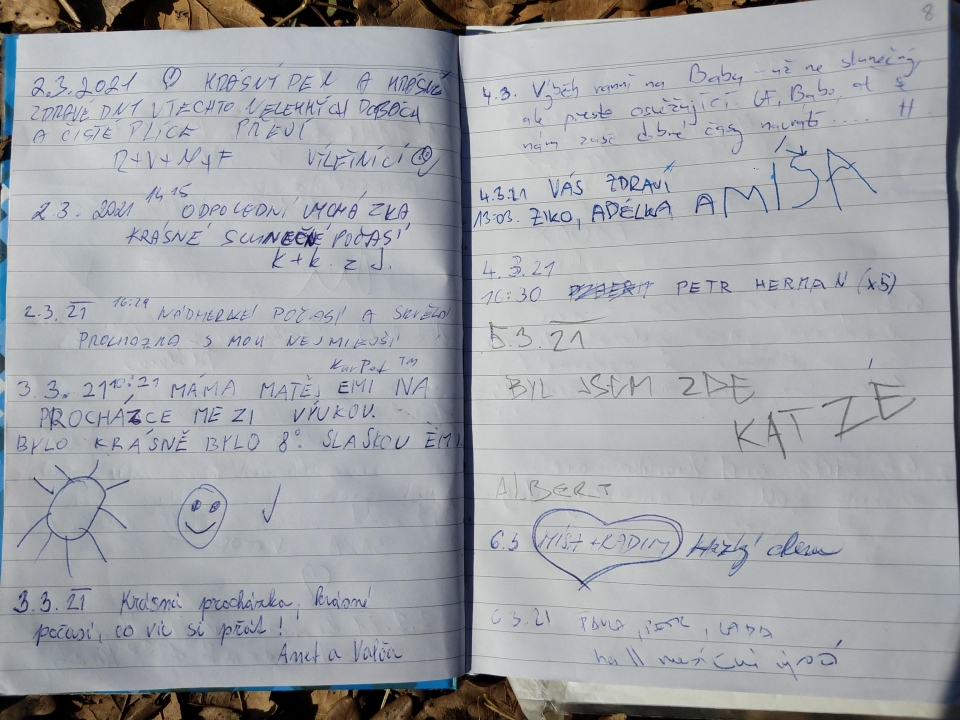 2.3.2021 KRÁSNÝ DEN A KRÁSNÉ
ZDRAVÉ DNY V TĚCHTO NELEHKÝCH DOBÁCH
A ČISTÉ PLÍCE PŘEJÍ
R+V+N+F VÝLETNÍCI
2.3. 2021 14 15 ODPOLEDNÍ VYCHÁZKA
KRÁSNÉ SLUNEČNÉ POČASÍ
K+K. z J.
2.3. 21 16:29 NÁDHERNÉ POČASÍ A SKVĚLÁ
PROCHÁZKA S MOU NEJMILEJŠÍ
KurPet TM
3.3. 21 10:21 MÁMA MATĚJ EMI NA
PROCHÁZCE MEZI VÝUKOV.
BYLO KRÁSNĚ BYLO 8°. SLAŠKOU EMI
3.3. 21 Krásná procházka, krásné
počasí, co víc si přát!
Aneta a Valča
8
4.3. Výběh ranní na Babu – už ne slunečný,
ale přesto osvěžující. Babo, ať
nám zase dobré časy navrátí.... H
4.3.21 VÁS ZDRAVÍ
13:03. ZIKO, ADÉLKA A MÍŠA
4.3.21
16:30 PETR HERMAN (x5)
5.3.21
BYL JSEM ZDE
KATZÉ
ALBERT
6.3 MÍŠA+RADIM Hezký den
6.3.21 PAVLA, PETR, LADA
na měsíční výročí